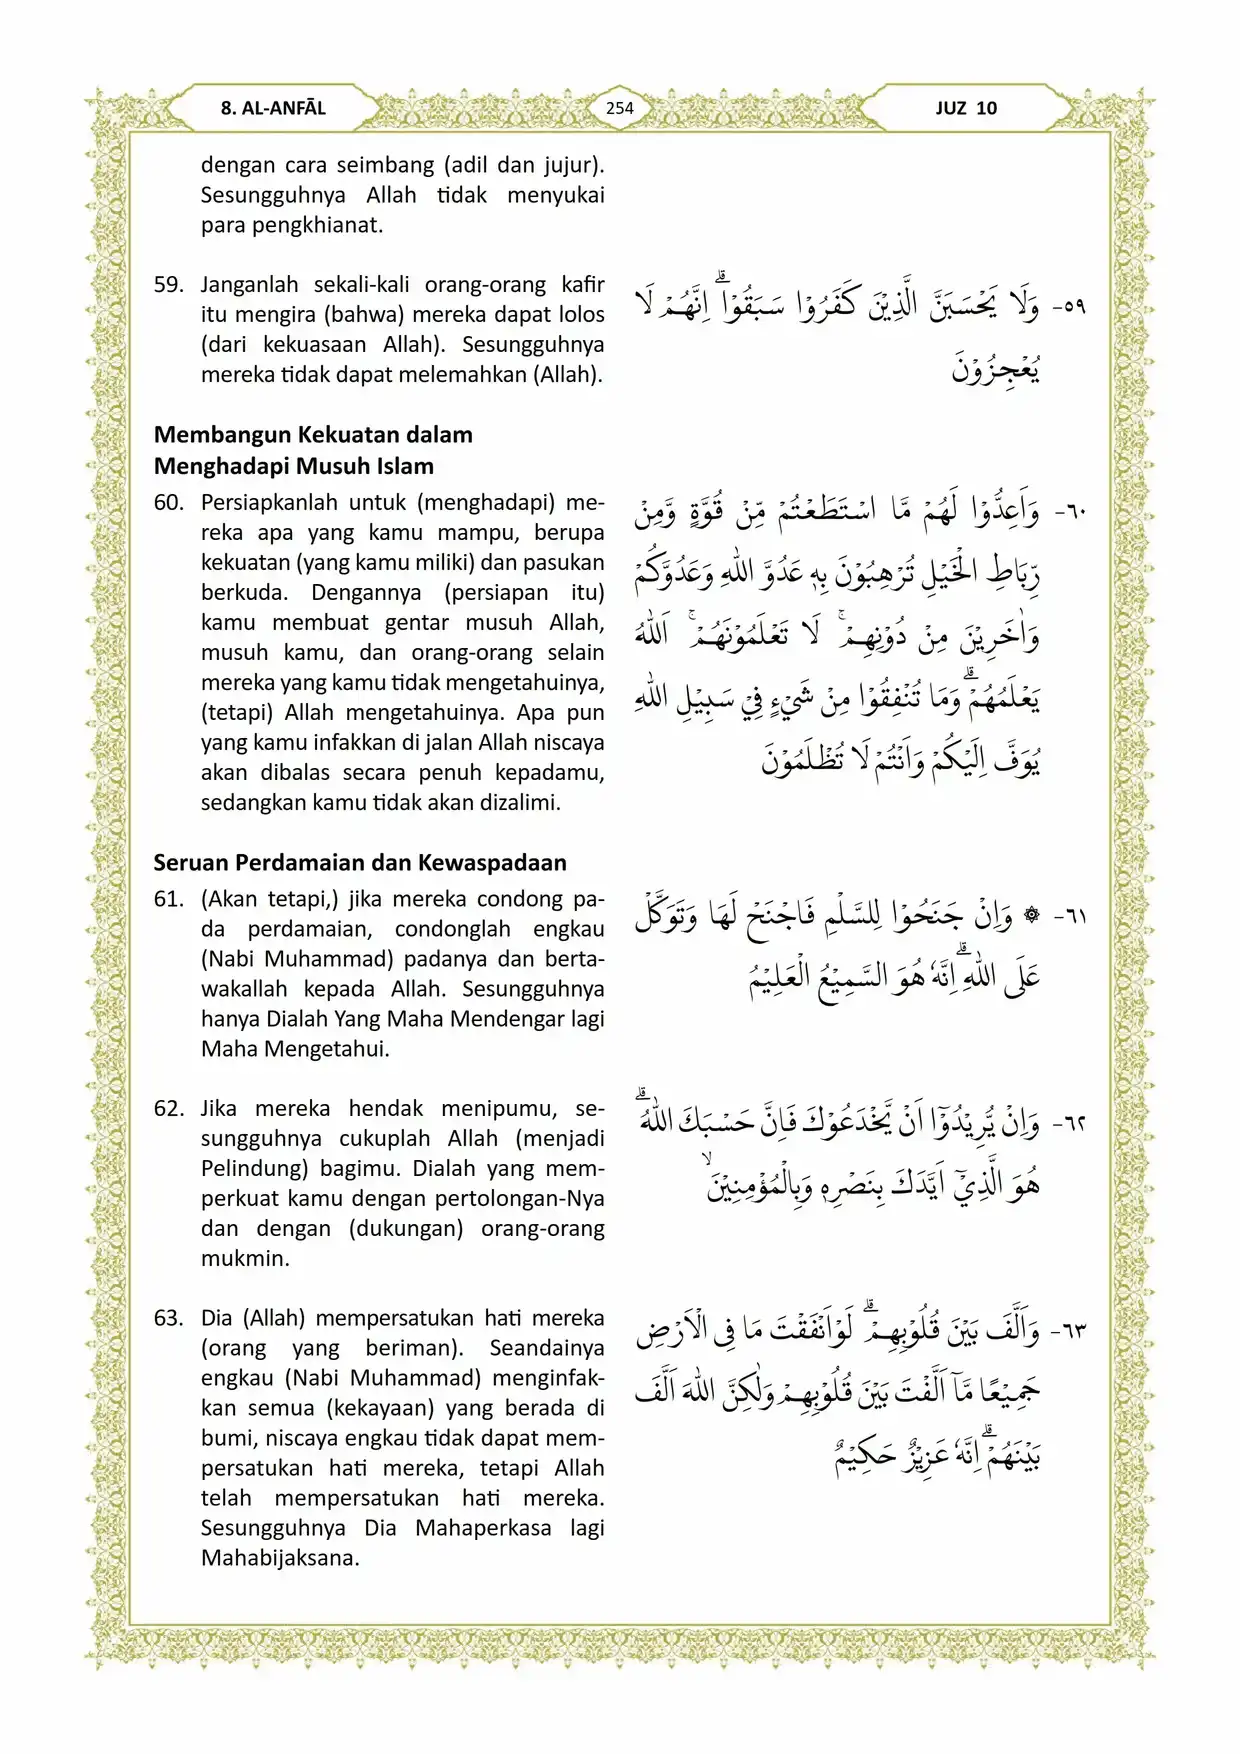 8. AL-ANFĀL
254
JUZ 10
dengan cara seimbang (adil dan jujur).
Sesungguhnya Allah tidak menyukai
para pengkhianat.
59. Janganlah sekali-kali orang-orang kafir
itu mengira (bahwa) mereka dapat lolos
(dari kekuasaan Allah). Sesungguhnya
mereka tidak dapat melemahkan (Allah).
٥٩- وَلَا يَحْسَبَنَّ الَّذِيْنَ كَفَرُوْا سَبَقُوْاۗ اِنَّهُمْ لَا
يُعْجِزُوْنَ
Membangun Kekuatan dalam
Menghadapi Musuh Islam
60. Persiapkanlah untuk (menghadapi) me-
reka apa yang kamu mampu, berupa
kekuatan (yang kamu miliki) dan pasukan
berkuda. Dengannya (persiapan itu)
kamu membuat gentar musuh Allah,
musuh kamu, dan orang-orang selain
mereka yang kamu tidak mengetahuinya,
(tetapi) Allah mengetahuinya. Apa pun
yang kamu infakkan di jalan Allah niscaya
akan dibalas secara penuh kepadamu,
sedangkan kamu tidak akan dizalimi.
٦٠- وَاَعِدُّوْا لَهُمْ مَّا اسْتَطَعْتُمْ مِّنْ قُوَّةٍ وَّمِنْ
رِّبَاطِ الْخَيْلِ تُرْهِبُوْنَ بِهٖ عَدُوَّ اللّٰهِ وَعَدُوَّكُمْ
وَاٰخَرِيْنَ مِنْ دُوْنِهِمْۚ لَا تَعْلَمُوْنَهُمْۚ اَللّٰهُ
يَعْلَمُهُمْۗ وَمَا تُنْفِقُوْا مِنْ شَيْءٍ فِيْ سَبِيْلِ اللّٰهِ
يُوَفَّ اِلَيْكُمْ وَاَنْتُمْ لَا تُظْلَمُوْنَ
Seruan Perdamaian dan Kewaspadaan
61. (Akan tetapi,) jika mereka condong pa-
da perdamaian, condonglah engkau
(Nabi Muhammad) padanya dan berta-
wakallah kepada Allah. Sesungguhnya
hanya Dialah Yang Maha Mendengar lagi
Maha Mengetahui.
٦١- ۞ وَاِنْ جَنَحُوْا لِلسَّلْمِ فَاجْنَحْ لَهَا وَتَوَكَّلْ
عَلَى اللّٰهِۗ اِنَّهٗ هُوَ السَّمِيْعُ الْعَلِيْمُ
62. Jika mereka hendak menipumu, se-
sungguhnya cukuplah Allah (menjadi
Pelindung) bagimu. Dialah yang mem-
perkuat kamu dengan pertolongan-Nya
dan dengan (dukungan) orang-orang
mukmin.
٦٢- وَاِنْ يُّرِيْدُوْٓا اَنْ يَّخْدَعُوْكَ فَاِنَّ حَسْبَكَ اللّٰهُۗ
هُوَ الَّذِيْٓ اَيَّدَكَ بِنَصْرِهٖ وَبِالْمُؤْمِنِيْنَۙ
63. Dia (Allah) mempersatukan hati mereka
(orang yang beriman). Seandainya
engkau (Nabi Muhammad) menginfak-
kan semua (kekayaan) yang berada di
bumi, niscaya engkau tidak dapat mem-
persatukan hati mereka, tetapi Allah
telah mempersatukan hati mereka.
Sesungguhnya Dia Mahaperkasa lagi
Mahabijaksana.
٦٣- وَاَلَّفَ بَيْنَ قُلُوْبِهِمْۗ لَوْ اَنْفَقْتَ مَا فِى الْاَرْضِ
جَمِيْعًا مَّآ اَلَّفْتَ بَيْنَ قُلُوْبِهِمْ وَلٰكِنَّ اللّٰهَ اَلَّفَ
بَيْنَهُمْۗ اِنَّهٗ عَزِيْزٌ حَكِيْمٌ